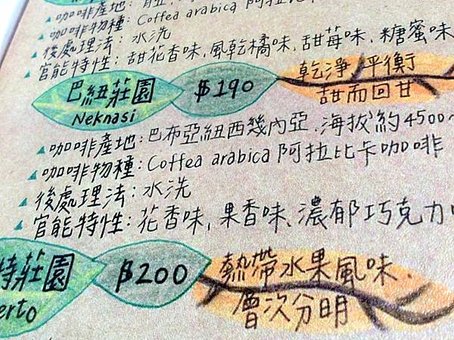 咖啡產地:
咖啡物種: Coffea arabica 阿拉
後處理法: 水洗
官能特性: 甜花香味, 風乾橘味, 甜莓味, 糖蜜味
巴紐莊園 $190 乾淨 平衡
Neknasi 甜而回甘
咖啡產地: 巴布亞紐西幾內亞, 海拔約4500~
咖啡物種: Coffea arabica 阿拉比卡咖啡
後處理法: 水洗
官能特性: 花香味, 果香味, 濃郁巧克力
特莊園 $200 熱帶水果風味、
erto 層次分明